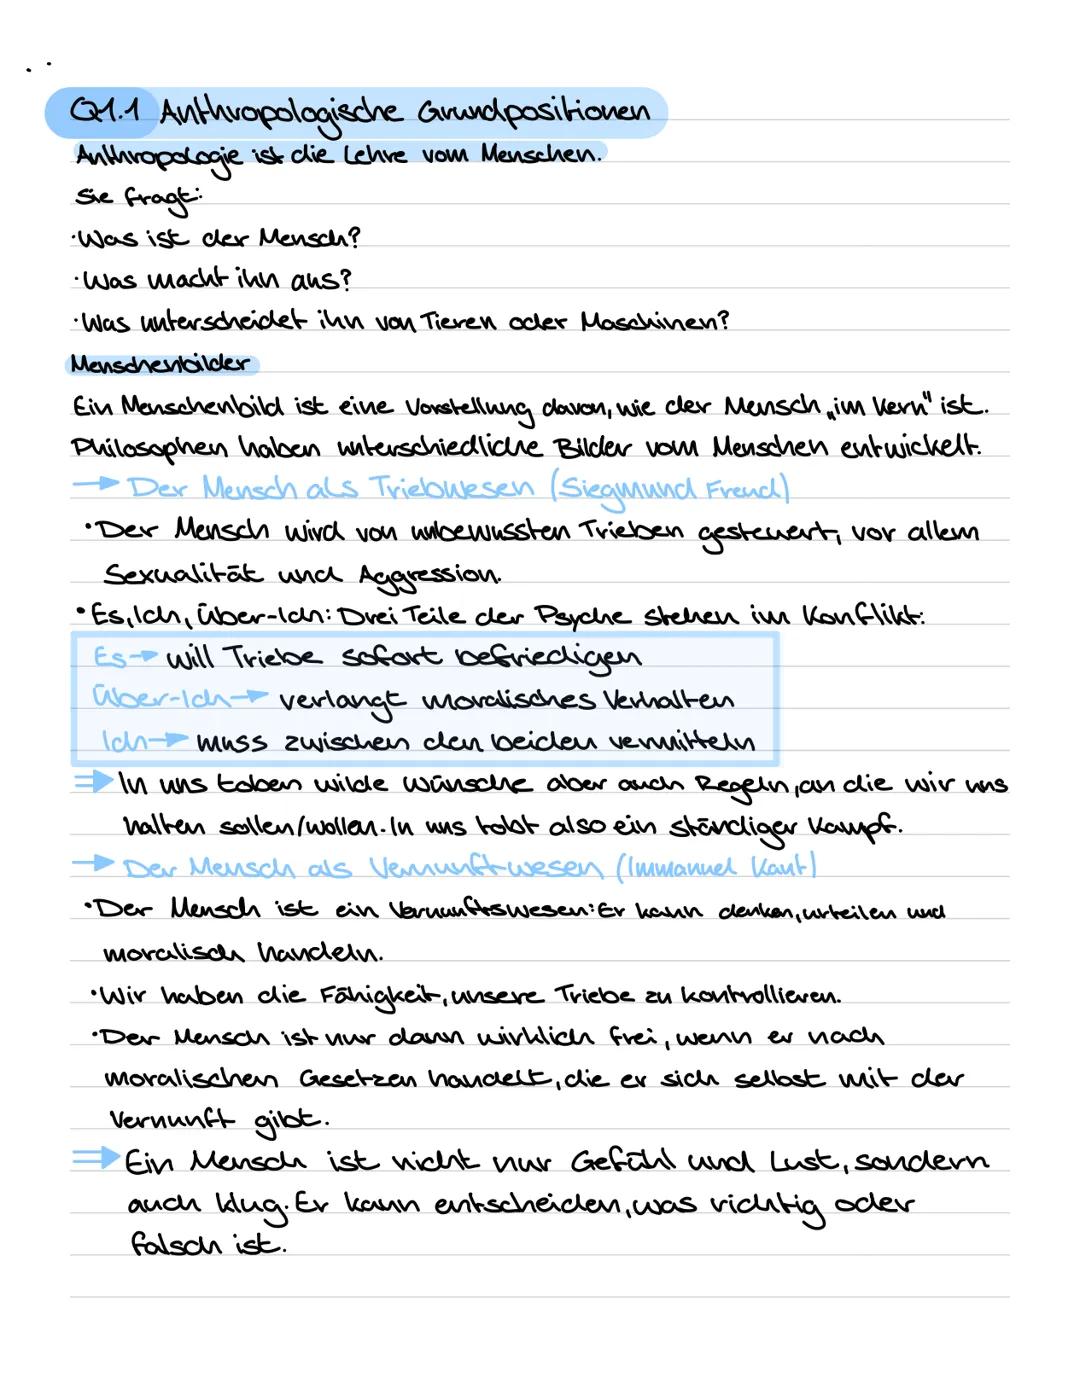 Q1.1 Anthropologische Grundpositionen
Anthropologie ist die Lehre vom Menschen.
Sie fragt:
·Was ist der Mensch?
·Was macht ihn aus?
·Was unterscheidet ihn von Tieren oder Maschinen?
Menschenbilder
Ein Menschenbild ist eine Vorstellung davon, wie der Mensch „im Kern" ist.
Philosophen haben unterschiedliche Bilder vom Menschen entwickelt.
→ Der Mensch als Triebwesen (Siegmund Freud)
•Der Mensch wird von unbewussten Trieben gesteuert, vor allem
Sexualität und Aggression.
•Es, Ich, Über-Ich: Drei Teile der Psyche stehen im Konflikt:
Es→ will Triebe sofort befriedigen
Über-Ich→ verlangt moralisches Verhalten
Ich→ muss zwischen den beiden vermitteln
⇒ In uns toben wilde Wünsche aber auch Regeln, an die wir uns
halten sollen/wollen. In uns tobt also ein ständiger Kampf.
→ Der Mensch als Vernunftwesen (Immanuel Kant)
•Der Mensch ist ein Vernunftswesen: Er kann denken, urteilen und
moralisch handeln.
•Wir haben die Fähigkeit, unsere Triebe zu kontrollieren.
•Der Mensch ist nur dann wirklich frei, wenn er nach
moralischen Gesetzen handelt, die er sich selbst mit der
Vernunft gibt.
⇒ Ein Mensch ist nicht nur Gefühl und Lust, sondern
auch klug. Er kann entscheiden, was richtig oder
falsch ist.